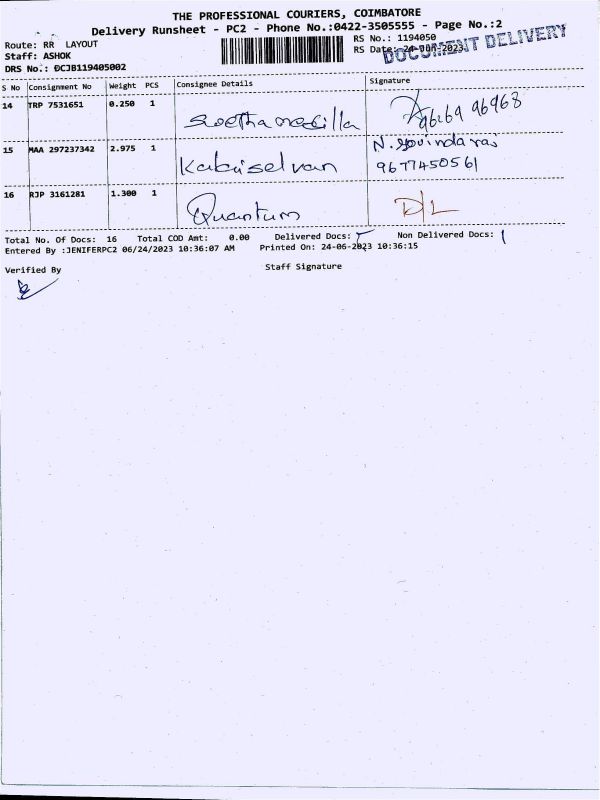 THE PROFESSIONAL COURIERS, COIMBATORE
Delivery Runsheet - PC2 - Phone No.:0422-3505555 - Page No.:2
Route: RR LAYOUT
Staff: ASHOK
DRS No.: DCJB119405002
RS No.: 1194050
RS Date: 24-Jun-2023
DOCUMENT DELIVERY
S No Consignment No Weight PCS Consignee Details Signature
14 TRP 7531651 0.250 1 96968
15 MAA 297237342 2.975 1 N. Govindaraj
9677450561
16 RJP 3161281 1.300 1 Quantum D/L
Total No. Of Docs: 16 Total COD Amt: 0.00 Delivered Docs: Non Delivered Docs: 1
Entered By :JENIFERPC2 06/24/2023 10:36:07 AM Printed On: 24-06-2023 10:36:15
Verified By Staff Signature